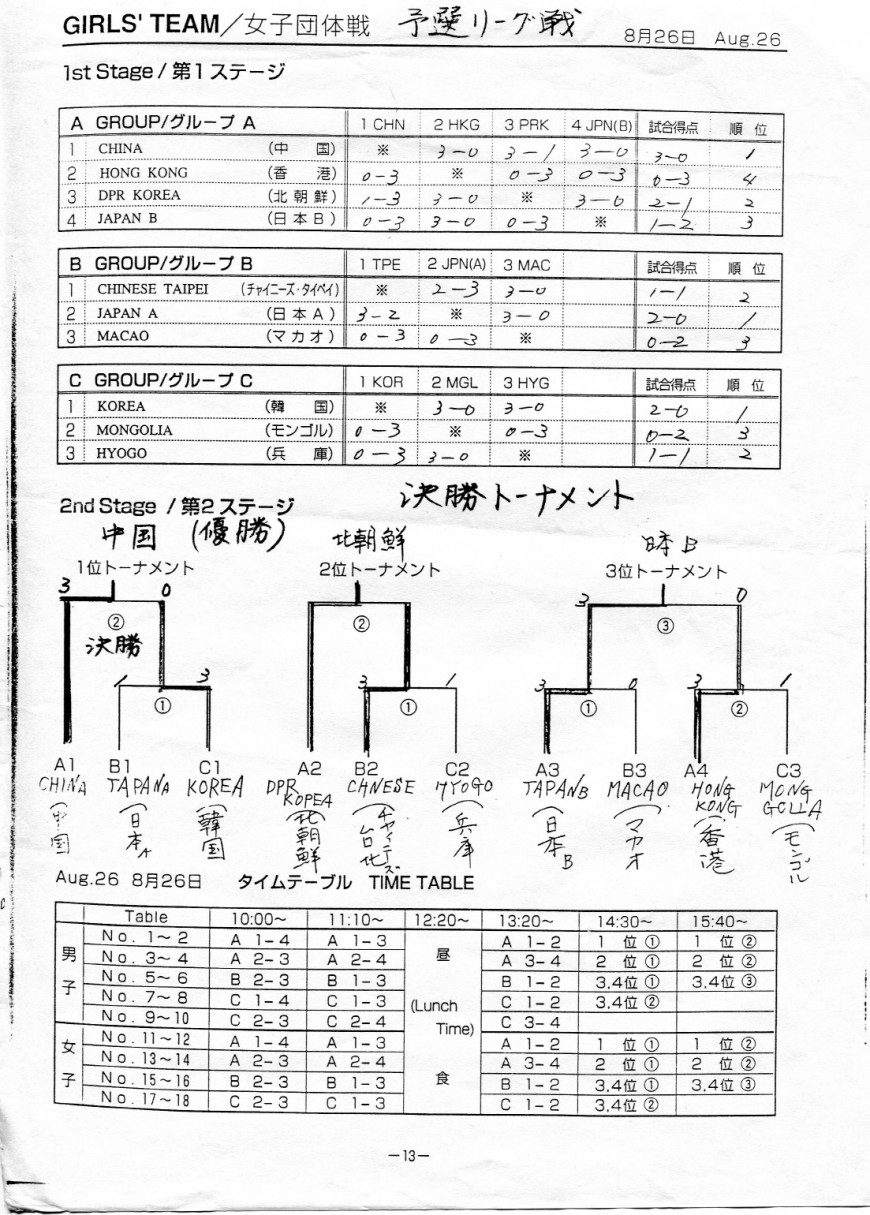 GIRLS' TEAM／女子団体戦 予選リーグ戦 8月26日 Aug.26
1st Stage / 第1ステージ
A GROUP/グループ A 1 CHN 2 HKG 3 PRK 4 JPN(B) 試合得点 順 位
1 CHINA (中 国) ※ 3-0 3-1 3-0 3-0 1
2 HONG KONG (香 港) 0-3 ※ 0-3 0-3 0-3 4
3 DPR KOREA (北 朝 鮮) 1-3 3-0 ※ 3-0 2-1 2
4 JAPAN B (日 本 B) 0-3 3-0 0-3 ※ 1-2 3
B GROUP/グループ B 1 TPE 2 JPN(A) 3 MAC 試合得点 順 位
1 CHINESE TAIPEI (チャイニーズ・タイペイ) ※ 2-3 3-0 1-1 2
2 JAPAN A (日 本 A) 3-2 ※ 3-0 2-0 1
3 MACAO (マ カ オ) 0-3 0-3 ※ 0-2 3
C GROUP/グループ C 1 KOR 2 MGL 3 HYG 試合得点 順 位
1 KOREA (韓 国) ※ 3-0 3-0 2-0 1
2 MONGOLIA (モンゴル) 0-3 ※ 0-3 0-2 3
3 HYOGO (兵 庫) 0-3 3-0 ※ 1-1 2
2nd Stage / 第2ステージ 決勝トーナメント
中国 (優勝) 北朝鮮 日本B
1位トーナメント 2位トーナメント 3位トーナメント
3 0 3 0
② ② ③
決勝
1 3 3 1 3 0 3 1
① ① ① ②
A1 B1 C1 A2 B2 C2 A3 B3 A4 C3
CHINA JAPAN A KOREA DPR KOPEA CHNESE HYOGO JAPAN B MACAO HONG KONG MONG GOLLA
(中国 (日本A (韓国 (北朝鮮 (チャイニーズ台北 (兵庫 (日本B (マカオ (香港 (モンゴル
Aug.26 8月26日 タイムテーブル TIME TABLE
Table 10:00~ 11:10~ 12:20~ 13:20~ 14:30~ 15:40~
男子 No. 1~ 2 A 1-4 A 1-3 昼 A 1-2 1 位 ① 1 位 ②
No. 3~ 4 A 2-3 A 2-4 A 3-4 2 位 ① 2 位 ②
No. 5~ 6 B 2-3 B 1-3 B 1-2 3,4位 ① 3,4位 ③
No. 7~ 8 C 1-4 C 1-3 (Lunch C 1-2 3,4位 ②
No. 9~10 C 2-3 C 2-4 Time) C 3-4
女子 No. 11~12 A 1-4 A 1-3 A 1-2 1 位 ① 1 位 ②
No. 13~14 A 2-3 A 2-4 A 3-4 2 位 ① 2 位 ②
No. 15~16 B 2-3 B 1-3 食 B 1-2 3,4位 ① 3,4位 ③
No. 17~18 C 2-3 C 1-3 C 1-2 3,4位 ②
-13-